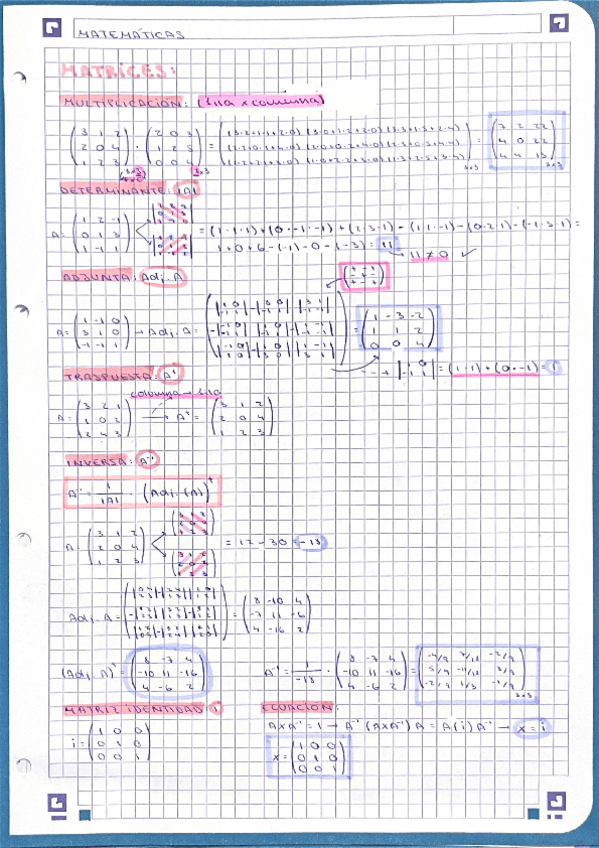 MATEMÁTICAS
MATRICES:
MULTIPLICACIÓN: (fila x columna)
(3 1 2 / 2 0 4 / 1 2 3) · (2 0 3 / 1 2 5 / 0 0 4) = = (7 2 22 / 4 0 22 / 4 4 13)
3x3 3x3 3x3 3x3
DETERMINANTE: |A|
A = (1 2 -1 / 0 1 3 / 1 -1 1) = (1·1·1)+(0·-1·-1)+(2·3·1)-(1·1·-1)-(0·2·1)-(-1·3·1) =
1+0+6-(-1)-0-(-3) = 11
11 ≠ 0 ✓
ADJUNTA: Adj. A
(+ - + / - + - / + - +)
A = (1 -1 0 / 3 1 0 / -1 -1 1) → Adj. A = = (1 -3 -2 / 1 1 2 / 0 0 4)
→ |1 0 / -1 1| = (1·1)+(0·-1) = 1
TRASPUESTA: Aᵗ
columna → fila
A = (3 2 1 / 1 0 2 / 2 4 3) → Aᵗ = (3 1 2 / 2 0 4 / 1 2 3)
INVERSA: A⁻¹
A⁻¹ = 1/|A| · (Adj. (A))ᵗ
A = (3 1 2 / 2 0 4 / 1 2 3) = 12 - 30 = -18
Adj. A = = (8 -10 4 / -7 11 -6 / 4 -16 2)
(Adj. A)ᵗ = (8 -7 4 / -10 11 -16 / 4 -6 2) A⁻¹ = 1/-18 · (8 -7 4 / -10 11 -16 / 4 -6 2) = (-4/9 7/18 -2/9 / 5/9 -11/18 / -2/9 1/3 -1/9)
3x3
MATRIZ IDENTIDAD i ECUACIÓN:
AxA⁻¹ = 1 → A⁻¹ (AxA⁻¹) A = A(i) A⁻¹ → x = i
i = (1 0 0 / 0 1 0 / 0 0 1) x = (1 0 0 / 0 1 0 / 0 0 1)